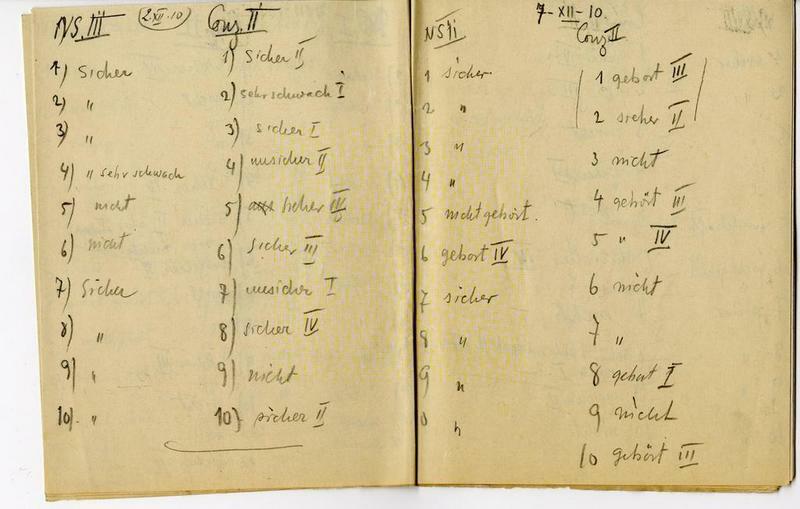 NS. III (2.XII.10)
1) Sicher
2) "
3) "
4) " sehr schwach
5) nicht
6) nicht
7) Sicher
8) "
9) "
10) "
Conz. II
1) Sicher II
2) sehr schwach I
3) sicher I
4) unsicher II
5) sicher IV
6) Sicher III
7) unsicher I
8) sicher IV
9) nicht
10) sicher II
7-XII-10.
1 sicher
2 "
3 "
4 "
5 nicht gehört.
6 gehört IV
7 sicher
8 "
9 "
0 "
Conz II
1 gehört III
2 sicher II
3 nicht
4 gehört III
5 " IV
6 nicht
7 "
8 gehört I
9 nicht
10 gehört III